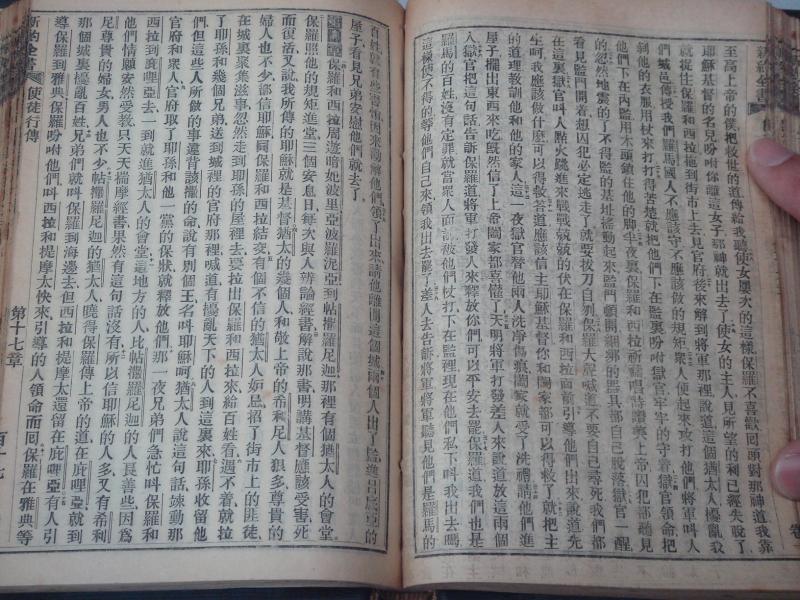 至高上帝的僕把救世的道傳給我聽使女屢次的這樣保羅不喜歡回頭對那神道我靠
耶穌基督的名兒吩咐你離這女子那神就出去了使女的主人見所望的利已經失脫了
就捉住保羅和西拉拖到街市上去見官府後來解到將軍那裡說道這個猶太人擾亂我
們城邑傳授我們羅馬國人不應該守不應該做的規矩衆人便起來攻打他們將軍叫人
剝他的衣服用杖來打打得苦楚就把他們下在監裏吩咐獄官牢牢的守着獄官領命把
他們下在內監用木頭鎖住他的脚半夜裏保羅和西拉祈禱唱詩讚美上帝囚犯都聽見
的忽然地震的了不得監的基址搖動起來監門頓開鎖鄉的器具都自己脫落獄官一醒
看見監門開着想囚犯必定逃走了就要拔刀自刎保羅大聲喊道不要自己尋死我們都
在這裏獄官叫人點火跳進來戰戰兢兢的伏在保羅和西拉面前引導他們出來說道先
生呵我應該做什麼可以得救答道應該信主耶穌基督你和闔家都可以得救了就把主
的道理教訓他和他的家人這一夜獄官替他兩人洗淨傷痕闔家就受了洗禮請他們進
屋子擺出東西來吃旣然信了上帝闔家都喜懽了天明將軍打發差人來說道放這兩個
人獄官把這句話告訴保羅道將軍打發人來釋放你們可以平安去罷保羅道我們也是
羅馬的百姓沒有定罪就當衆人面前被他們杖打下在監裡現在他們私下叫我出去嗎
這樣使不得的等他們自己來領我出去罷了差人去告訴將軍將軍聽見他們是羅馬的
百姓就有些害怕因來勸解他們領了出來請他離開這個城兩個人出了監進呂底亞的
屋子看見兄弟安慰他們就去了
保羅和西拉周遊暗妃波里亞波羅泥亞到帖撒羅尼迦那裡有個猶太人的會堂
保羅照他的規矩進堂三個安息日每次與人辯論經書解說那書明講基督應該受害死
而復活又說我所傳的耶穌就是基督猶太的幾個人和敬上帝的希利尼人狠多尊貴的
婦人也不少都信耶穌同保羅和西拉結交有個不信的猶太人妒忌招了街市上的匪徒
在城裏聚集滋事忽然走到耶孫的屋裡去要拉出保羅和西拉來給百姓看遇不着就拉
了耶孫和幾個兄弟送到城裡的官府那裡喊道有擾亂天下的人到這裏來耶孫收留他
們但這些人所做的事違背該撒的命說有別個王名叫耶穌呵猶太人說這句話竦動那
官府和衆人官府取了耶孫和他一黨的保狀就釋放他們那一夜兄弟們急忙叫保羅和
西拉到庇哩亞去一到就進猶太人的會堂這地方的人比帖撒羅尼迦的人良善些因爲
他們情願安然受教只天天揣摩經書果然有這句話沒有所以信耶穌的人多又有希利
尼尊貴的婦女男人也不少帖撒羅尼迦的猶太人曉得保羅傳上帝的道在庇哩亞就到
那個城裏擾亂百姓兄弟們就叫保羅到海邊去但西拉和提摩太還留在庇哩亞有人引
導保羅到雅典保羅吩咐他們叫西拉和提摩太快來引導的人領命而回保羅在雅典等
新約全書 使徒行傳 第十七章 百十七